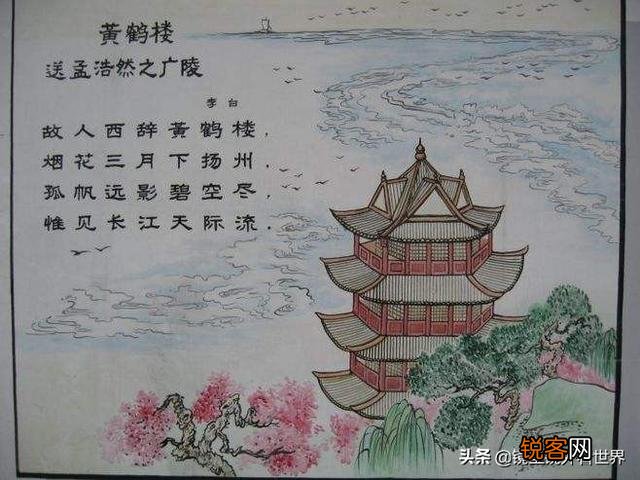 黄鹤楼
送孟浩然之广陵
李白
故人西辞黄鹤楼,
烟花三月下扬州.
孤帆远影碧空尽,
惟见长江天际流.
锐客网
头条 @
世界